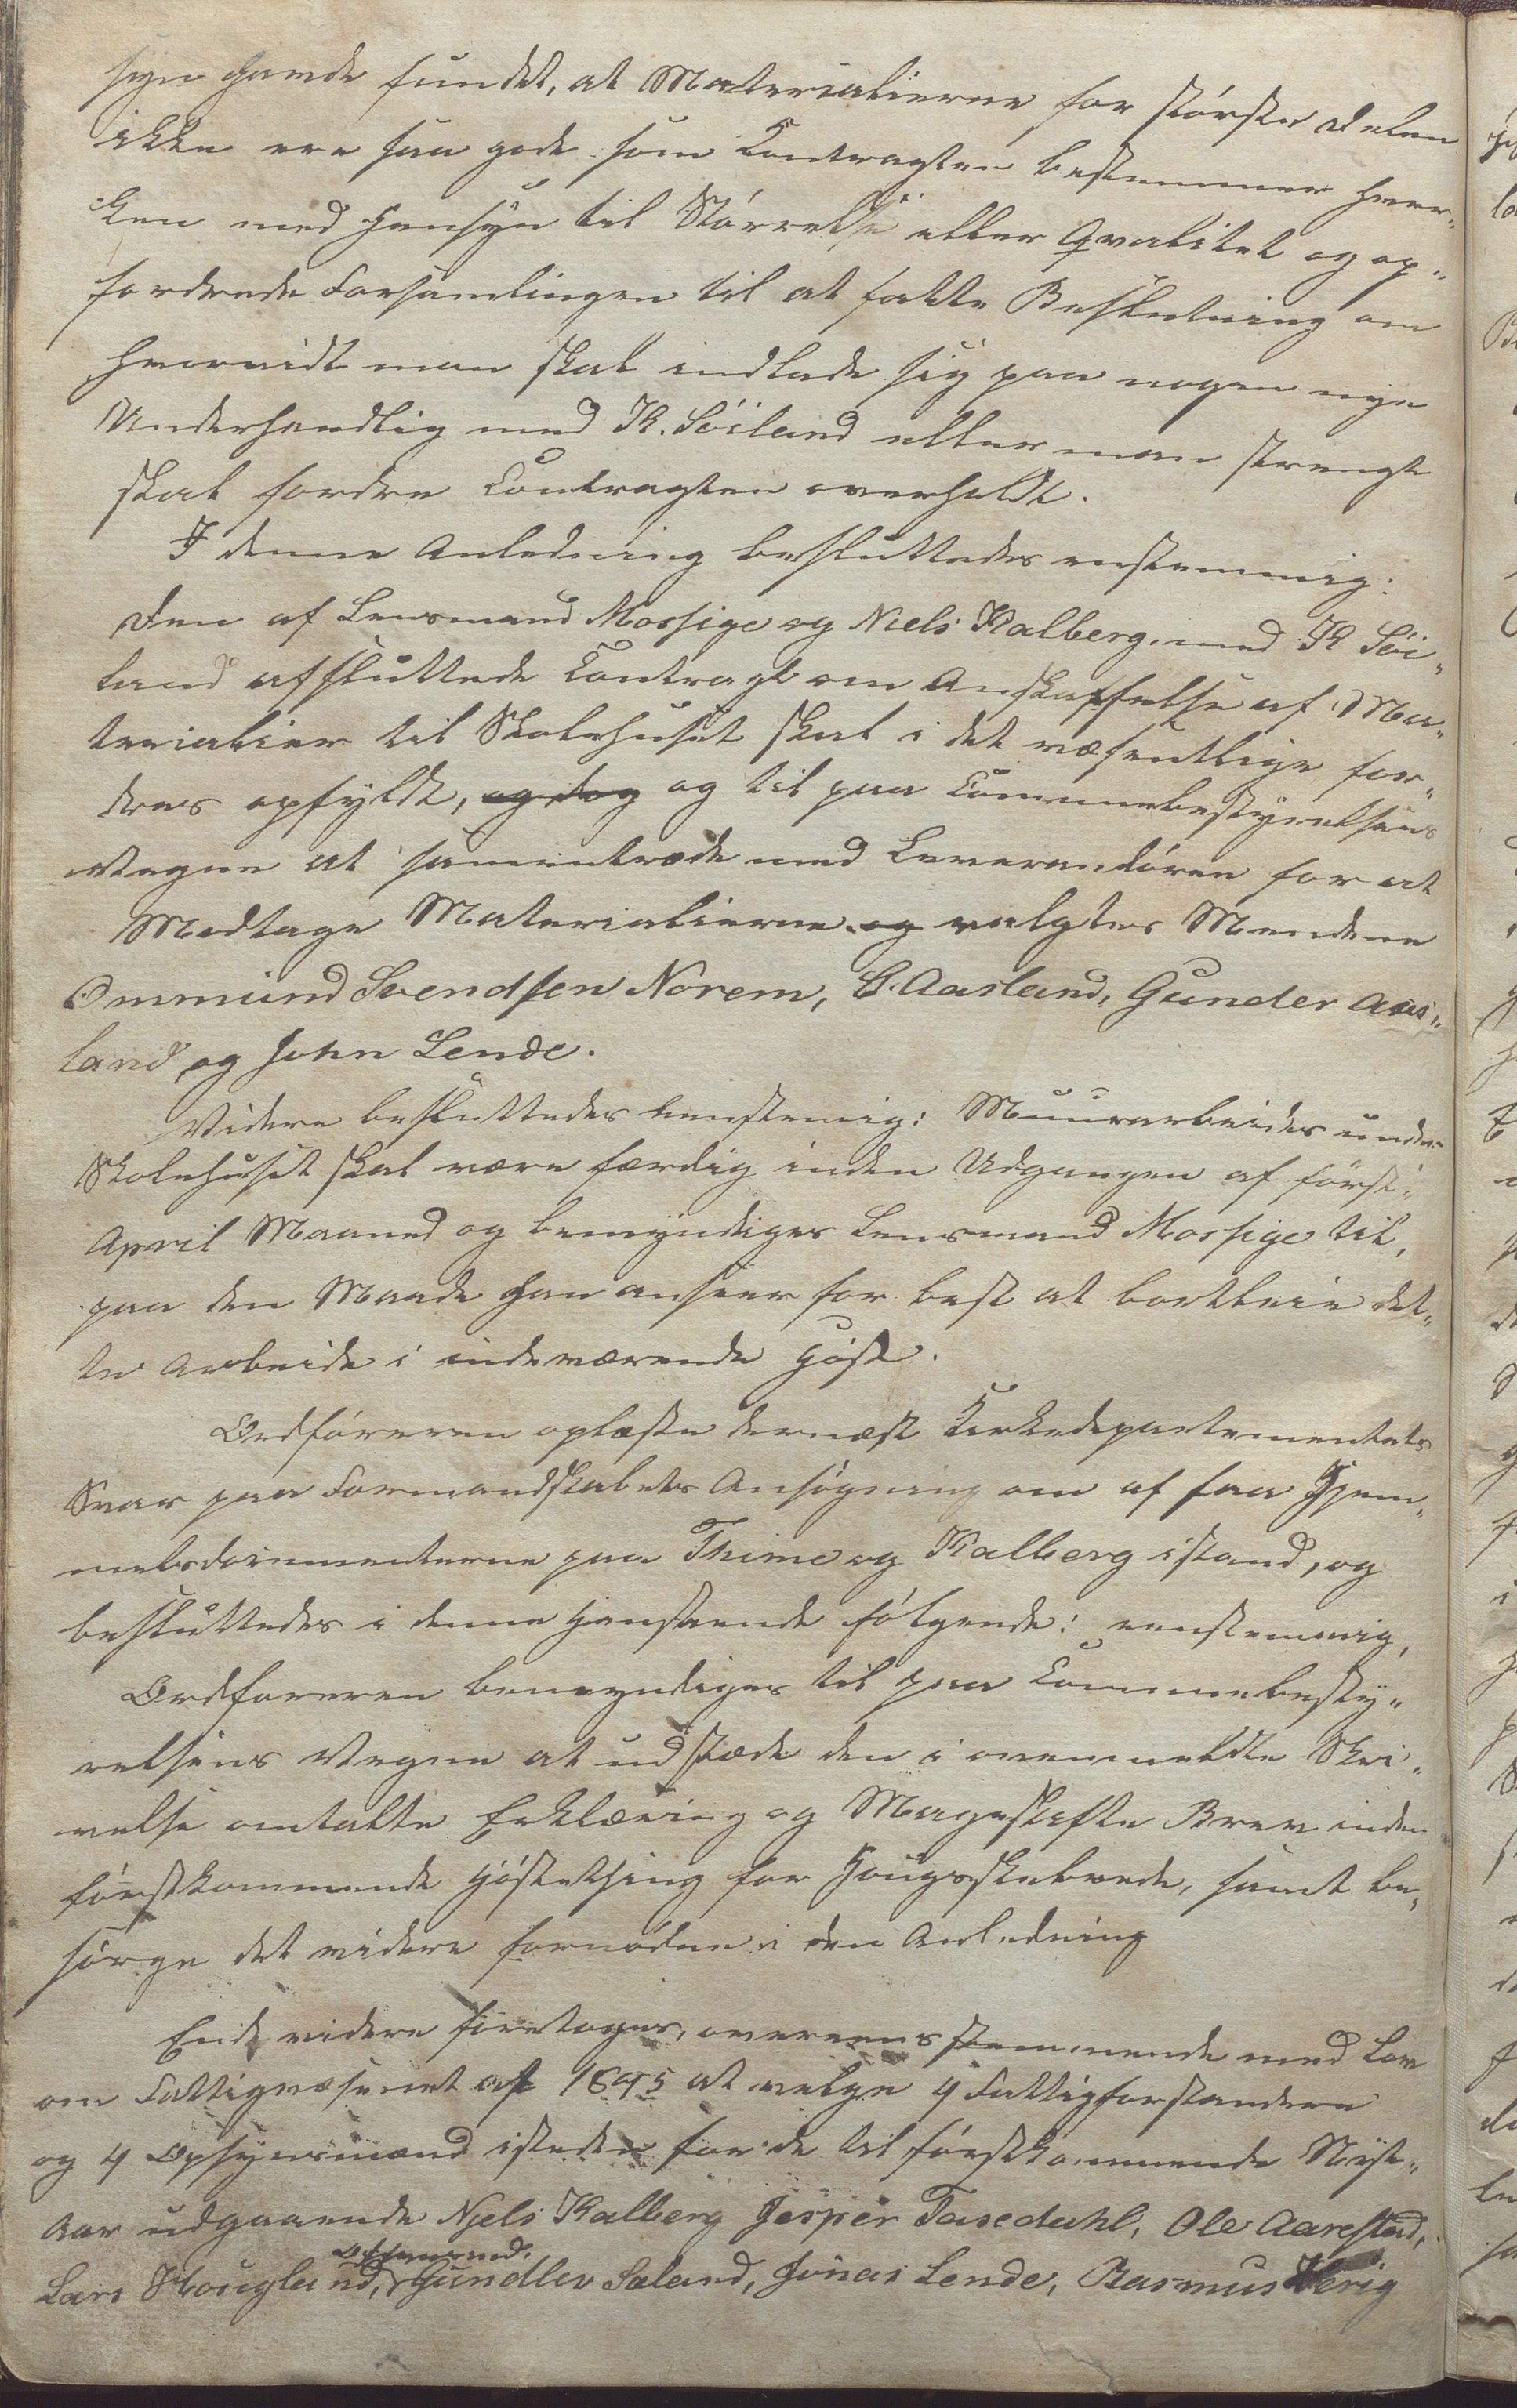 syn havde fundet, at Materialierne for största Delen
ikke ere saa gode som Contragten bestemmer hver„
ken med Hensyn til Störrelse eller Qvalitet og op„
fordrede Forsamlingen til at fatte Beslutning om
hvorvidt man skal indlade sig paa nogen nye
Underhandlig med K. Söiland eller man strengt
skal fordre Contragten overholdt.
I denne Anledning besluttedes enstemmig:
Den af Lensmand Mossige og Niels Kalberg med K Söi„
land afsluttede Contragt om Anskaffelse af Ma„
terialier til Skolehuset skal i det væsentlige for„
dres opfyldt, og dog og til paa Communebestyrelsens
Vegne at samentræde med Leverandören for at
Modtage Materialierne og valgtes Mendene
Ommund Svendsen Norem, B. Aasland, Gunder Aas„
land og John Lende.
Videre besluttedes eenstemig: Muurarbeides under
Skolehuset skal være færdig inden Udgangen af först„
April Maaned og bemyndiges Lensmand Mossige til,
paa den Maade han anseer for best at bortleie det„
te Arbeide i indeværende Höst.
Ordföreren oplæste dernæst Kirkedepartementets
Svar paa Formandskabets Ansögning om af faa Hjem„
melsdocumenterne paa Thime og Kalberg istand, og
besluttedes i denne Henseende fölgende: eenstemmig,
Ordforeren bemyndiges til paa Communebesty„
relsens Vegne at udstæde den i ovenmeldte Skri„
velse omtalte Erklæring og Mageskifte Brev inden
förstkommende Hösttething for Hougs Skibrede, samt be„
sörge det videre fornödne i den Anledning
End videre foretoges, overeensstemmende med Lov
om Fattigvæsenet af 1845 at velge 4 Fattigforstandere
og 4 Opsynsmænd isteden for de til förstkommende Nyt„
Aar udgaaende Njels Kalberg Jesper Tasedahl, Ole Aarestad,
Lars Hougland, Gundlev Sæland, Jonas Lende, Rasmus Herig